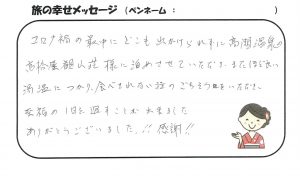 旅の幸せメッセージ（ペンネーム：　　　　）
コロナ禍の最中にどこも出かけられずに高湯温泉の
吾妻屋離山荘様に泊めさせていただきまたほど良い
湯温につかり、食べきれない程のごちそうをいただき、
至福の1日を過すことが出来ました
ありがとうございました!! 感謝!!